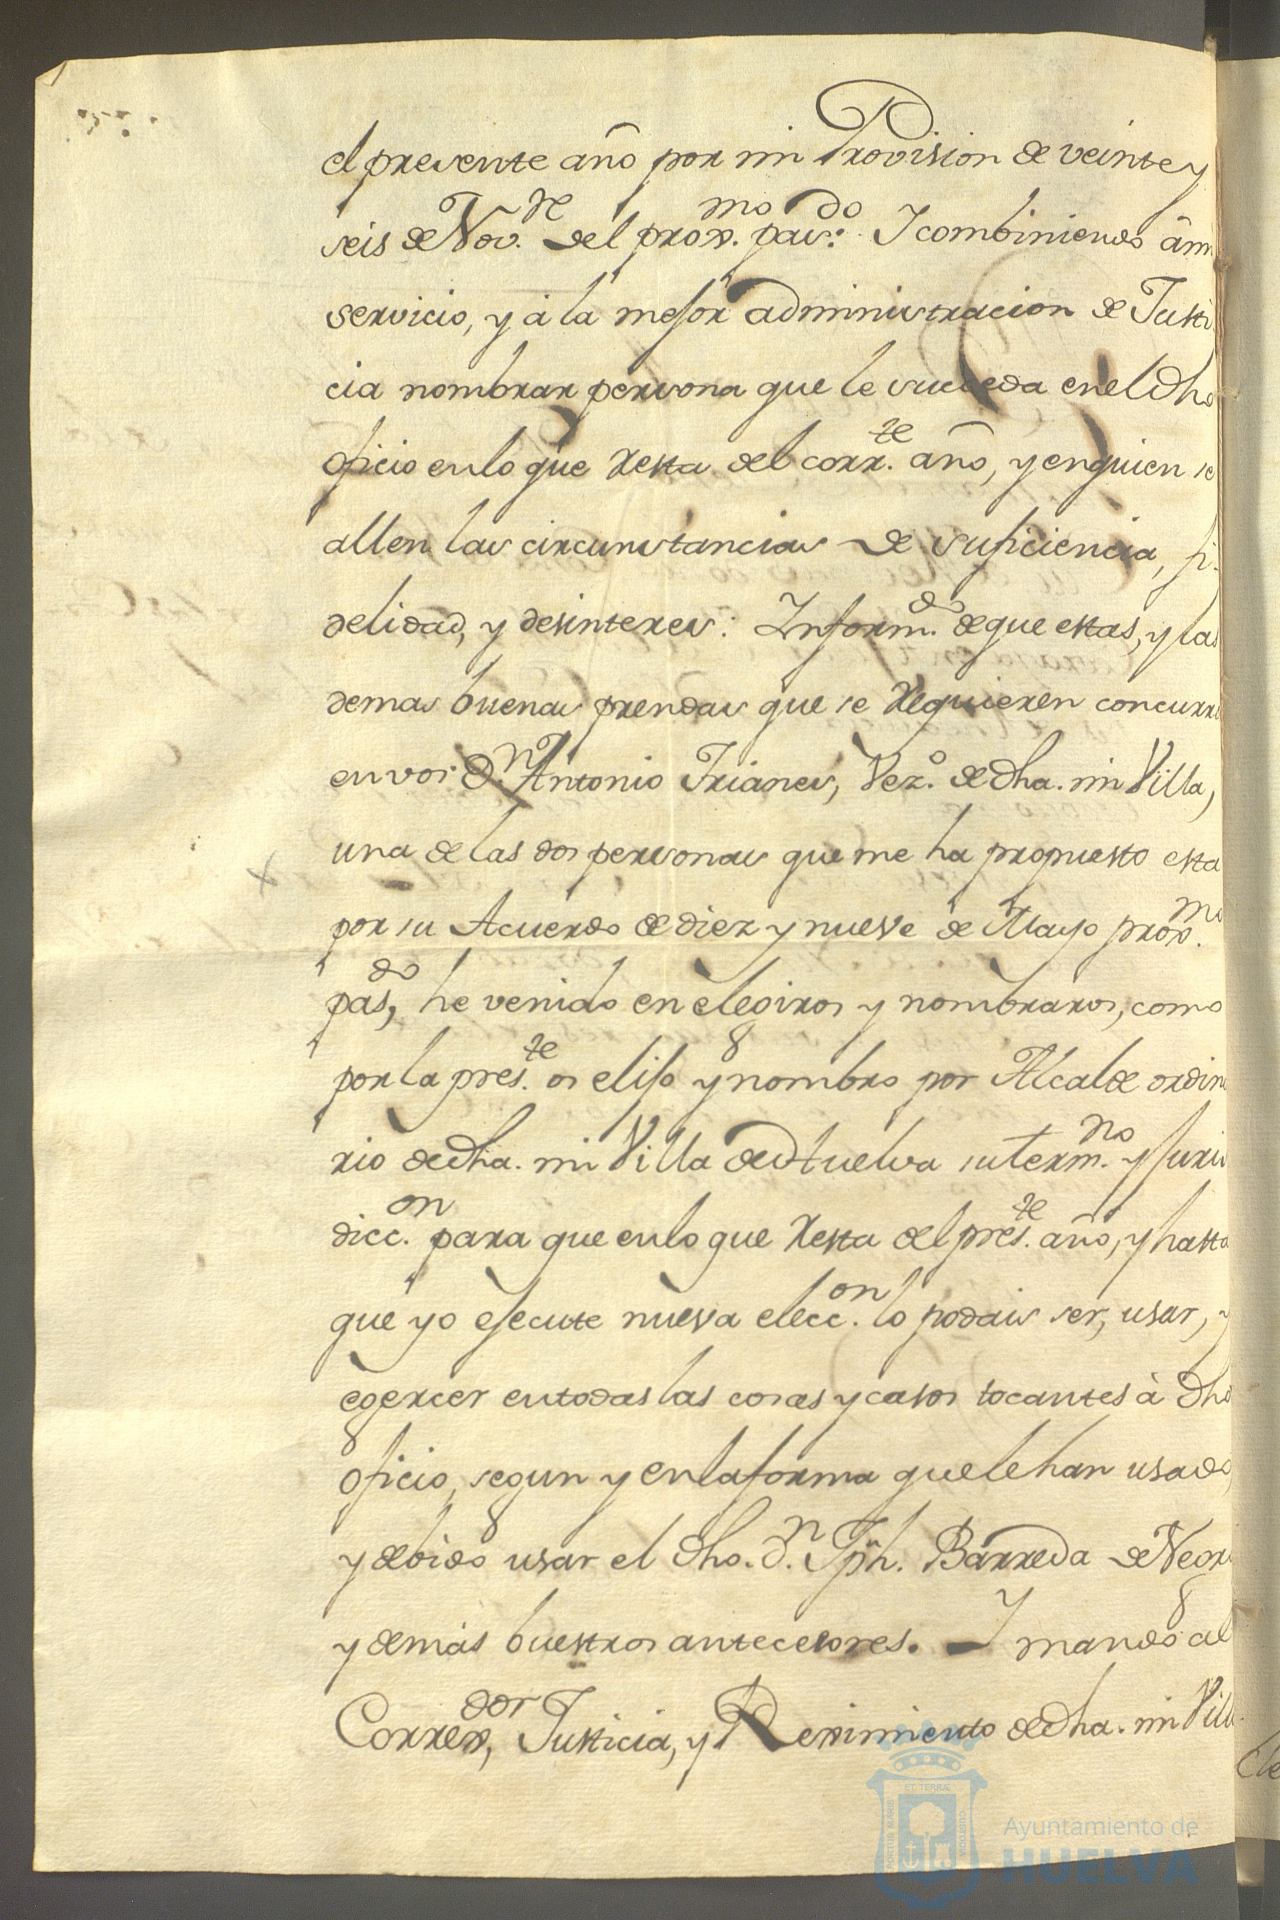 el presente año por mi Provision de veinte y
seis de Nov.re del prox.mo pas.do Y combiniendo á mi
servicio, y á la mejor administracion de Justi
cia nombrar persona que le suceda en el dho
oficio en lo que resta del corr.te año, y en quien se
allen las circunstancias de suficiencia, fi
delidad, y desinteres: Inform.do de que estas, y las
demas buenas prendas que se requieren concurren
en vos D.n Antonio Trianes, Vez.o de dha. mi Villa,
una de las dos personas que me ha propuesto esta
por su Acuerdo de diez y nueve de Mayo prox.mo
pas.do, he venido en elegiros y nombraros, como
por la pres.te os elijo y nombro por Alcalde ordina
rio de dha. mi Villa de Huelva su term.no y juris
dicc.on para que en lo que resta del pres.te año, y hasta
que yo ejecute nueva elecc.on lo podais ser, usar, y
egercer en todas las cosas y casos tocantes à dho
oficio, segun y en la forma que le han usado,
y debido usar el dho. d.n Jph. Barreda de Negr
y demàs buestros antecesores. Y mando al
Correx.dor, Justicia, y Reximiento de dha. mi Villa
Ayuntamiento de
HUELVA